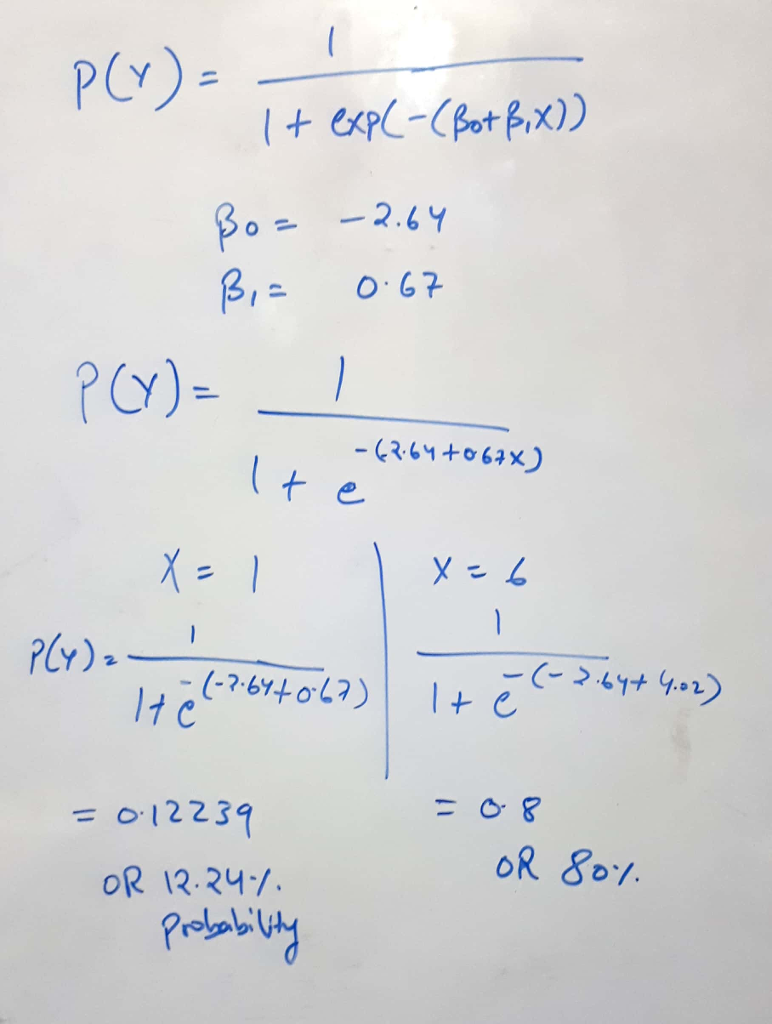 P(Y) = 1
1 + exp(-(β0+β1X))
β0 = -2.64
β1 = 0.67
P(Y) = 1
1 + e^-(-2.64+0.67X)
X = 1
P(Y) = 1
1+e^-(-2.64+0.67)
= 0.12239
OR 12.24%
Probability
X = 6
1
1 + e^-(-2.64+4.02)
= 0.8
OR 80%